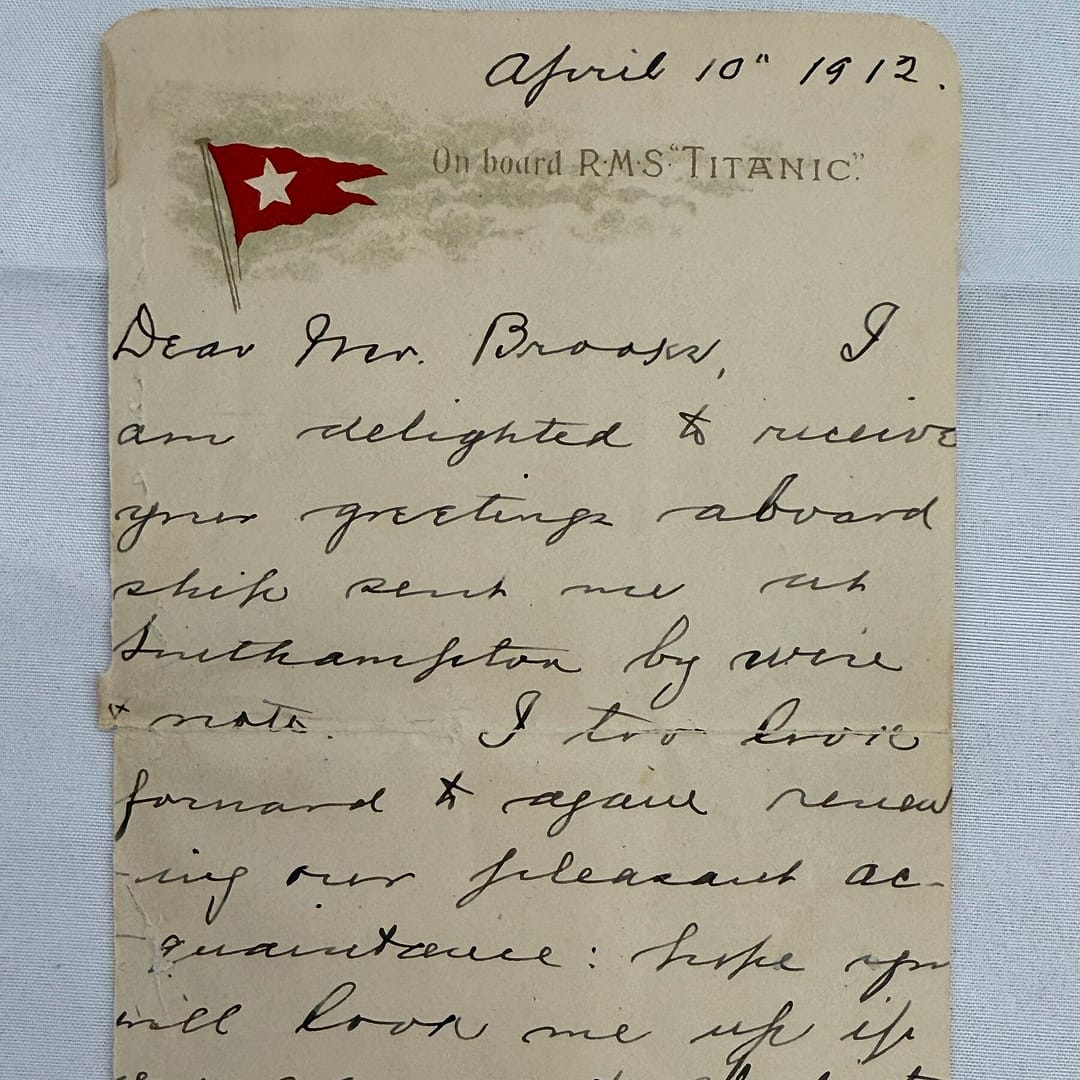 April 10" 1912.
On board R·M·S "TITANIC".
Dear Mr. Brooks, I
am delighted to receive
your greetings aboard
ship sent me at
Southampton by wire
& note. I too look
forward to again renew
-ing our pleasant ac-
-quaintance: hope you
will look me up if